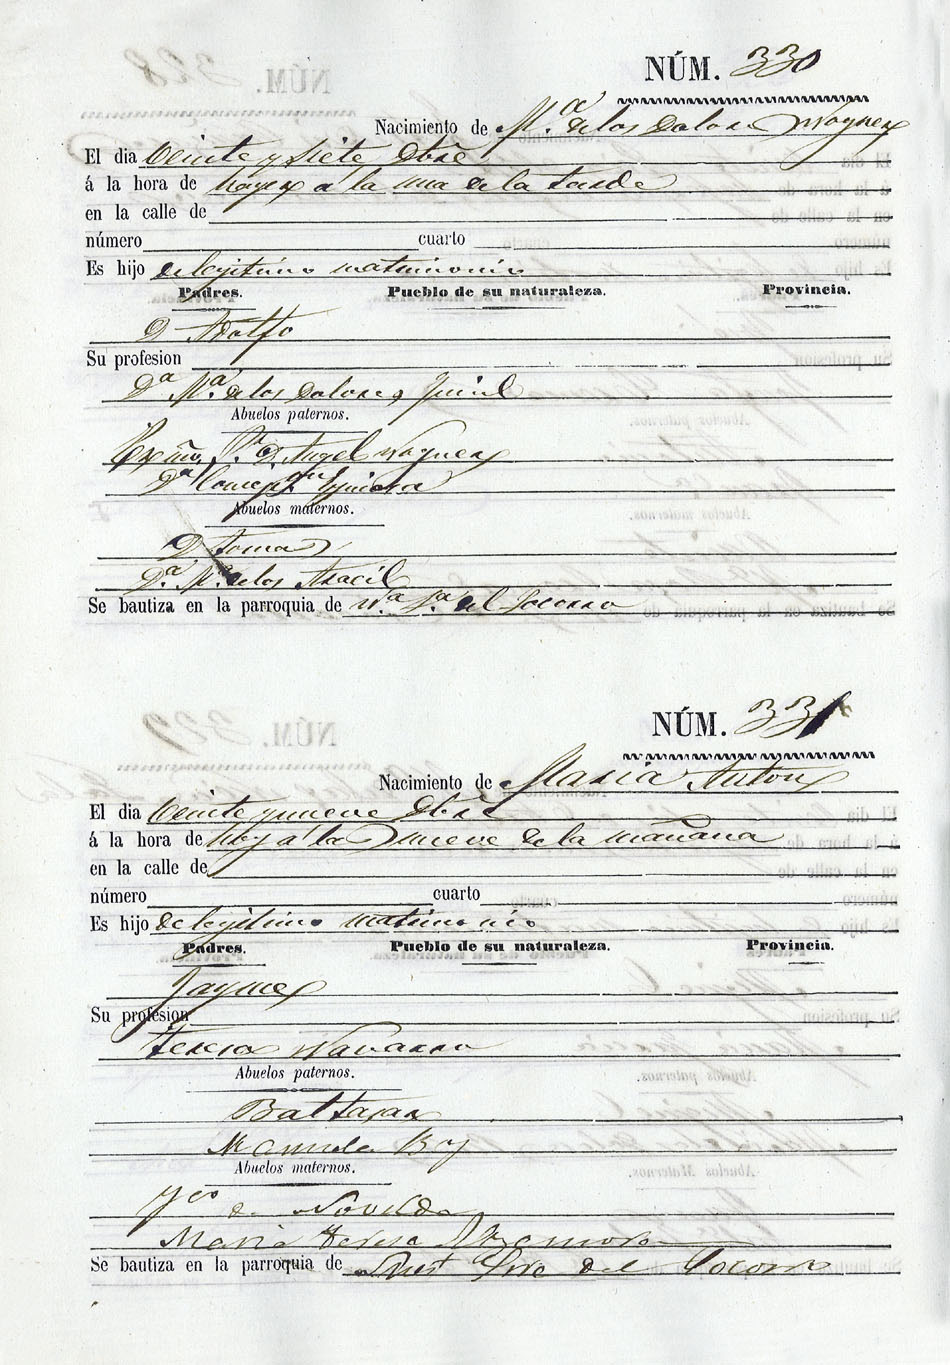 NÚM. 330
Nacimiento de Mª. de los Dolores Wagner
El dia Veinte y siete Obre
á la hora de á la una de la tarde
en la calle de
número cuarto
Es hijo de legitimo matrimonio
Padres. Pueblo de su naturaleza. Provincia.
D Adolfo
Su profesion
Dª Mª. de los Dolores
Abuelos paternos.
D. Angel Wagner
Dª
Abuelos maternos.
D Tomas
Dª. Mª. de los
Se bautiza en la parroquia de Nª Sª del Socorro
NÚM. 331
Nacimiento de Maria Anton
El dia Veinte y nueve Obre
á la hora de hoy á las nueve de la mañana
en la calle de
número cuarto
Es hijo de legitimo matrimonio
Padres. Pueblo de su naturaleza. Provincia.
Jayme
Su profesion
Teresa Navarro
Abuelos paternos.
Baltasar
Manuela Boy
Abuelos maternos.
de Novelda
Maria Teresa
Se bautiza en la parroquia de Nuest Sra del Socorro